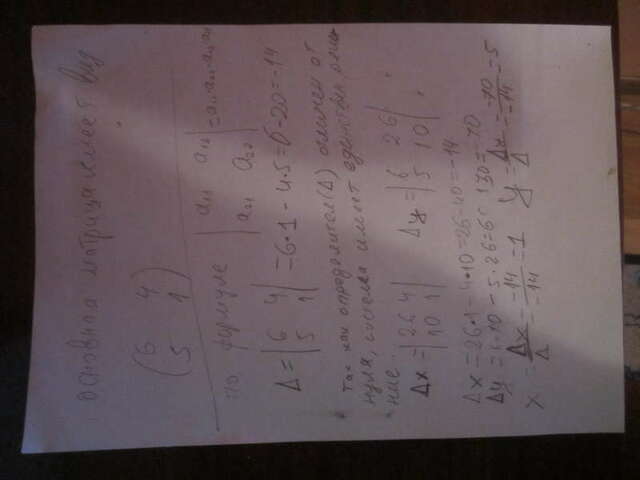 основная матрица имеет вид
(6 4
5 1)
по формуле |a₁₁ a₁₂
a₂₁ a₂₂| = a₁₁a₂₂-a₁₂a₂₁
Δ = |6 4
5 1| = 6·1 - 4·5 = 6-20 = -14
Так как определител(Δ) отличен от
нуля, система имеет единствен реше
ние.
Δx = |26 4
10 1| Δy = |6 26
5 10|
Δx = 26·1 - 4·10 = 26-40 = -14
Δy = 6·10 - 5·26 = 60 130 = -70
x = Δx/Δ = -14/-14 = 1 y = Δy/Δ = -70/-14 = 5